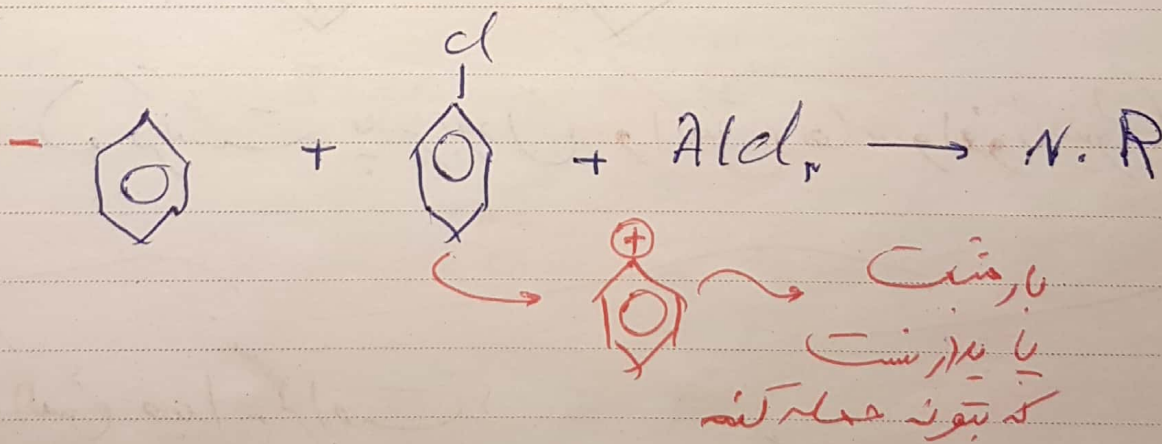 Cl
+ + AlCl۳ → N. R
+
بار مثبت
پایدار نیست
که بتونه حمله کنه